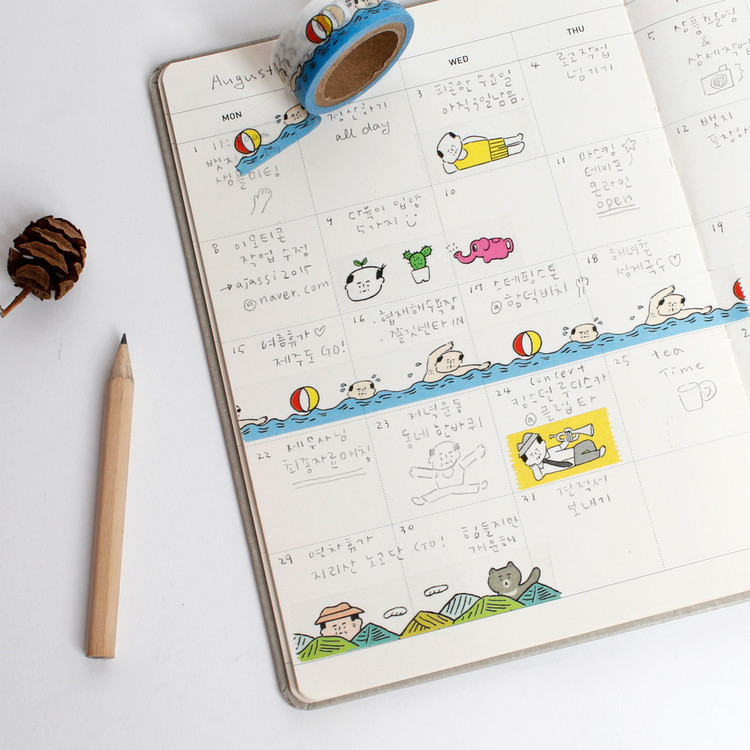 August
MON
WED
THU
1
벗
샘플미팅
정산하기
all day
3
피곤한 수요일
아직 2일 남음.
4
로고작업
넘기기
5
상품촬영
&
상세작업
8
이모티콘
작업 수정
→ajassi2015
@naver.com
9
다육이 입양
5가지
10
11
마스킹
테이프
온라인
open
12
벗
포장
15
여름휴가♡
제주도 GO!
16
협재해수욕장
쫄깃센타 IN
17
스테핑스톤
@함덕비치
18
해녀촌
성게국수♡
19
22
세무사님
최종자료 매칭
23
저녁운동
동네 한바퀴
24
concert
킹스턴 루디스카
@클럽 타
25
tea
Time
29
연차휴가
지리산 노고단 GO!
30
힘들지만
개운해
31
견적서
보내기